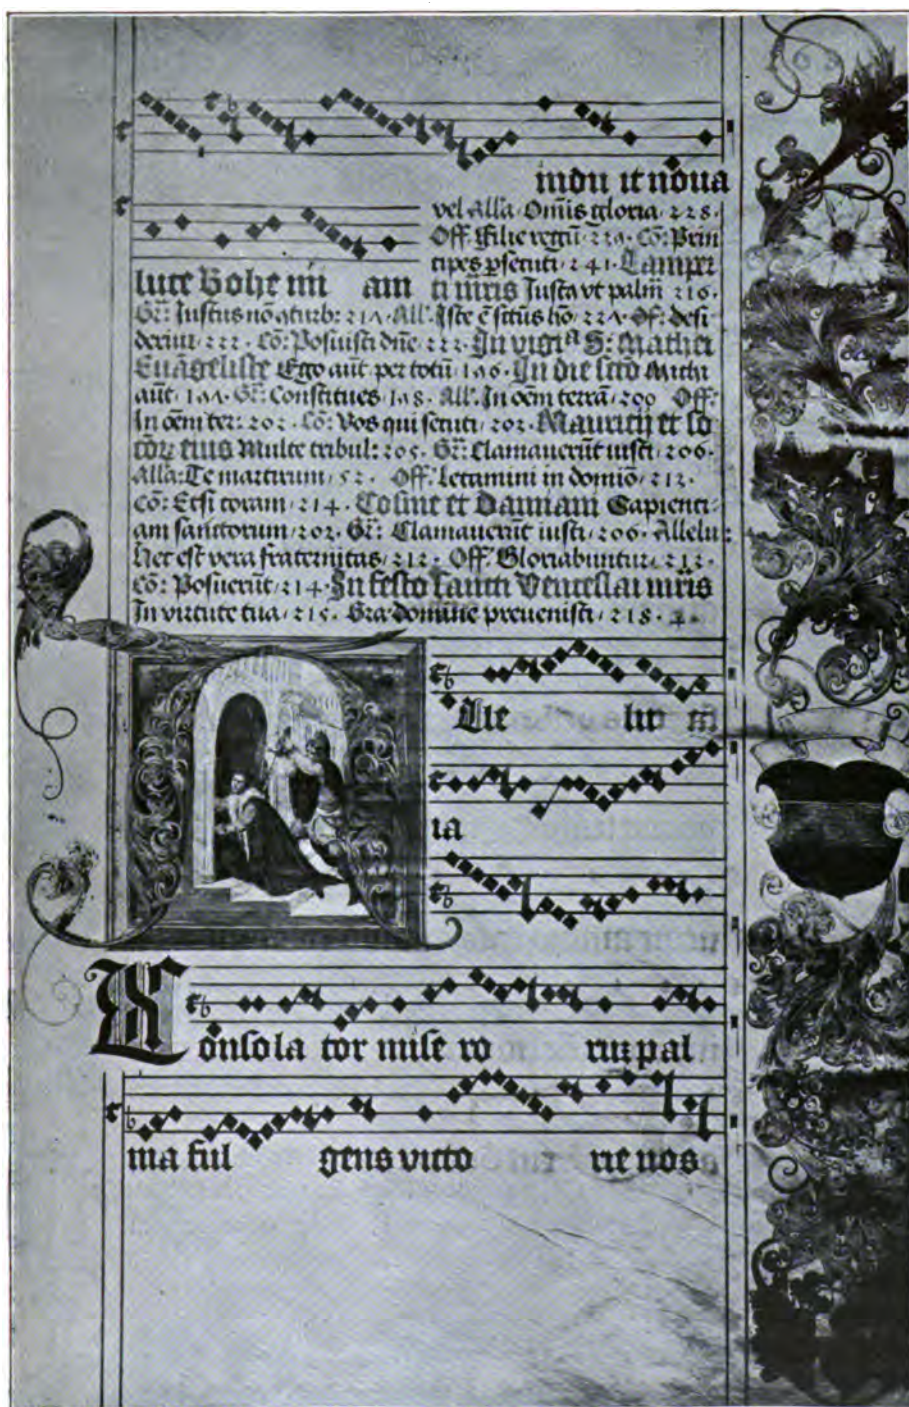 indu it noua
vel Alla. Om̄is gloria. 228.
Off. Filie regū. 229. Cō: Prin
cipes ꝑsecuti. 241. Lamper
luce Bohe mi am ti m̄ris Iusta vt palm̄ 216.
Gr: Iustus nō 217. All'. Iste ē hō. 227. Of: desi
deriū. 222. Cō: Posuisti dn̄e 222. In vigiᵃ S: Mathei
Euāgeliste Ego aūt per totū. 196. In die sctō Michi
aūt. 197. Gr: Constitues 198. All'. In oēm terrā. 200 Off:
In oēm ter: 202. Cō: Vos qui secuti. 203. Mauritij et so
eius Multe tribul: 205. Gr: Clamauerūt iusti. 206.
Alla: Te martirum. 52. Off. Letamini in domiō. 212.
Cō: Etsi coram. 214. Cosme et Damiani Sapienci
am sanctorum. 202. Gr: Clamauerūt iusti. 206. Allelu:
Hec est vera fraternitas. 212. Off. Gloriabuntur. 212.
Cō: Posuerūt. 214. In festo sancti Venceslai m̄ris
In virtute tua. 215. Gra: domine preuenisti. 218.
Alle lu
ia
Consola tor mise ro pal
ma ful gens victo rie nos